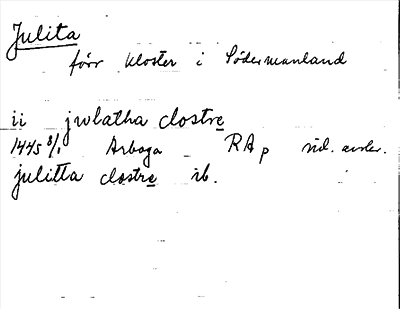 Julita
förr kloster i Södermanland
ii jwlatha clostre
1445 8/1 Arboga RAp sid. avskr.
julitta clostre ib.